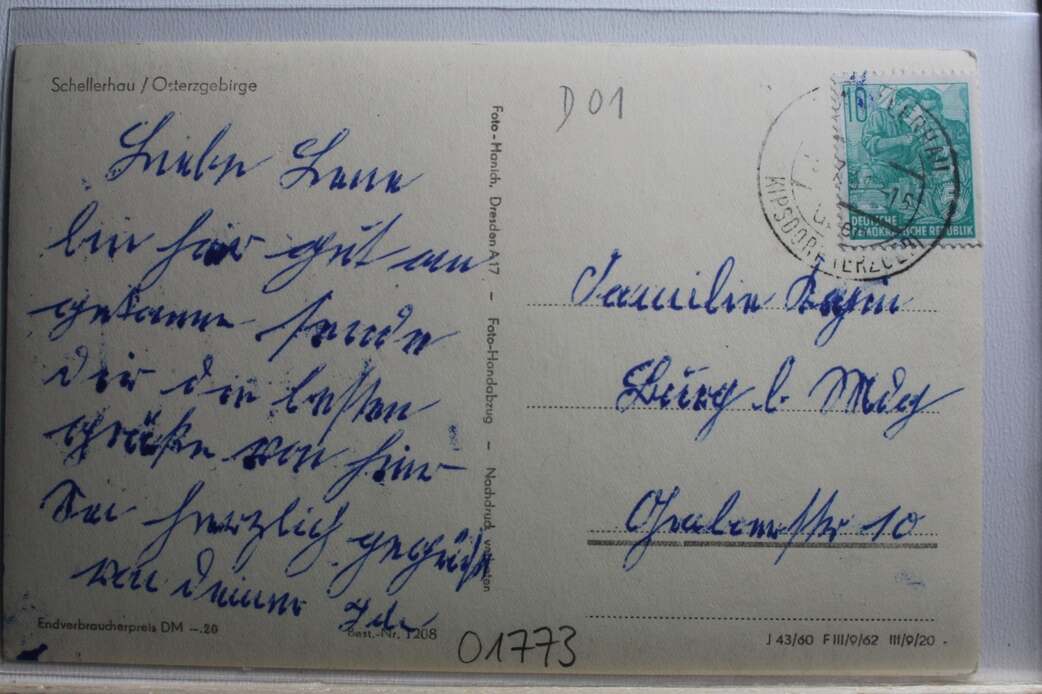 Schellerhau / Osterzgebirge
D 01
Liebe Lene
bin hier gut an
gekomme sende
dir die besten
Grüße von hier
Sei herzlich gegrüßt
von deiner Ida
Foto-Hanich, Dresden A 17 – Foto-Handabzug – Nachdruck verboten
10
DEUTSCHE
DEMOKRATISCHE REPUBLIK
KIPSDORF
Familie
Burg b. Mdg
10
Endverbraucherpreis DM –.20
Best.-Nr. 1208
01773
J 43/60 F III/9/62 III/9/20